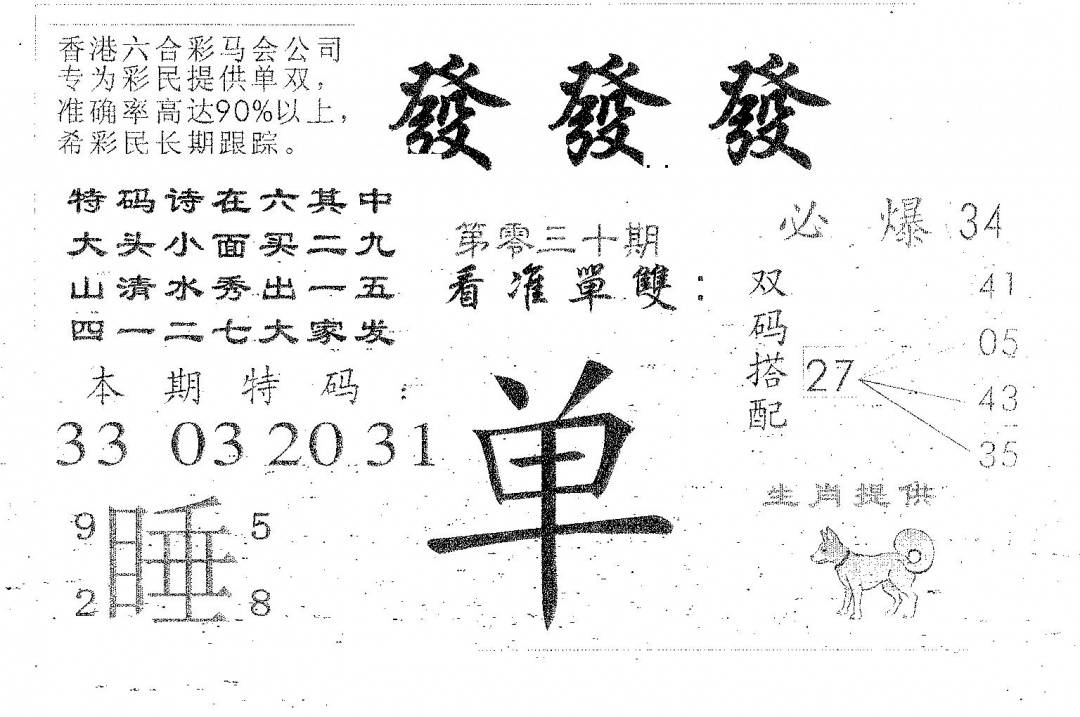 香港六合彩马会公司
专为彩民提供单双，
准确率高达90%以上，
希彩民长期跟踪。
發發發
特码诗在六其中
大头小面买二九
山清水秀出一五
四一二七大家发
本期特码：
33 03 20 31
9 5
睡
2 8
第零三十期
看准單雙：
单
必爆34
双码搭配
27
41
05
43
35
生肖提供